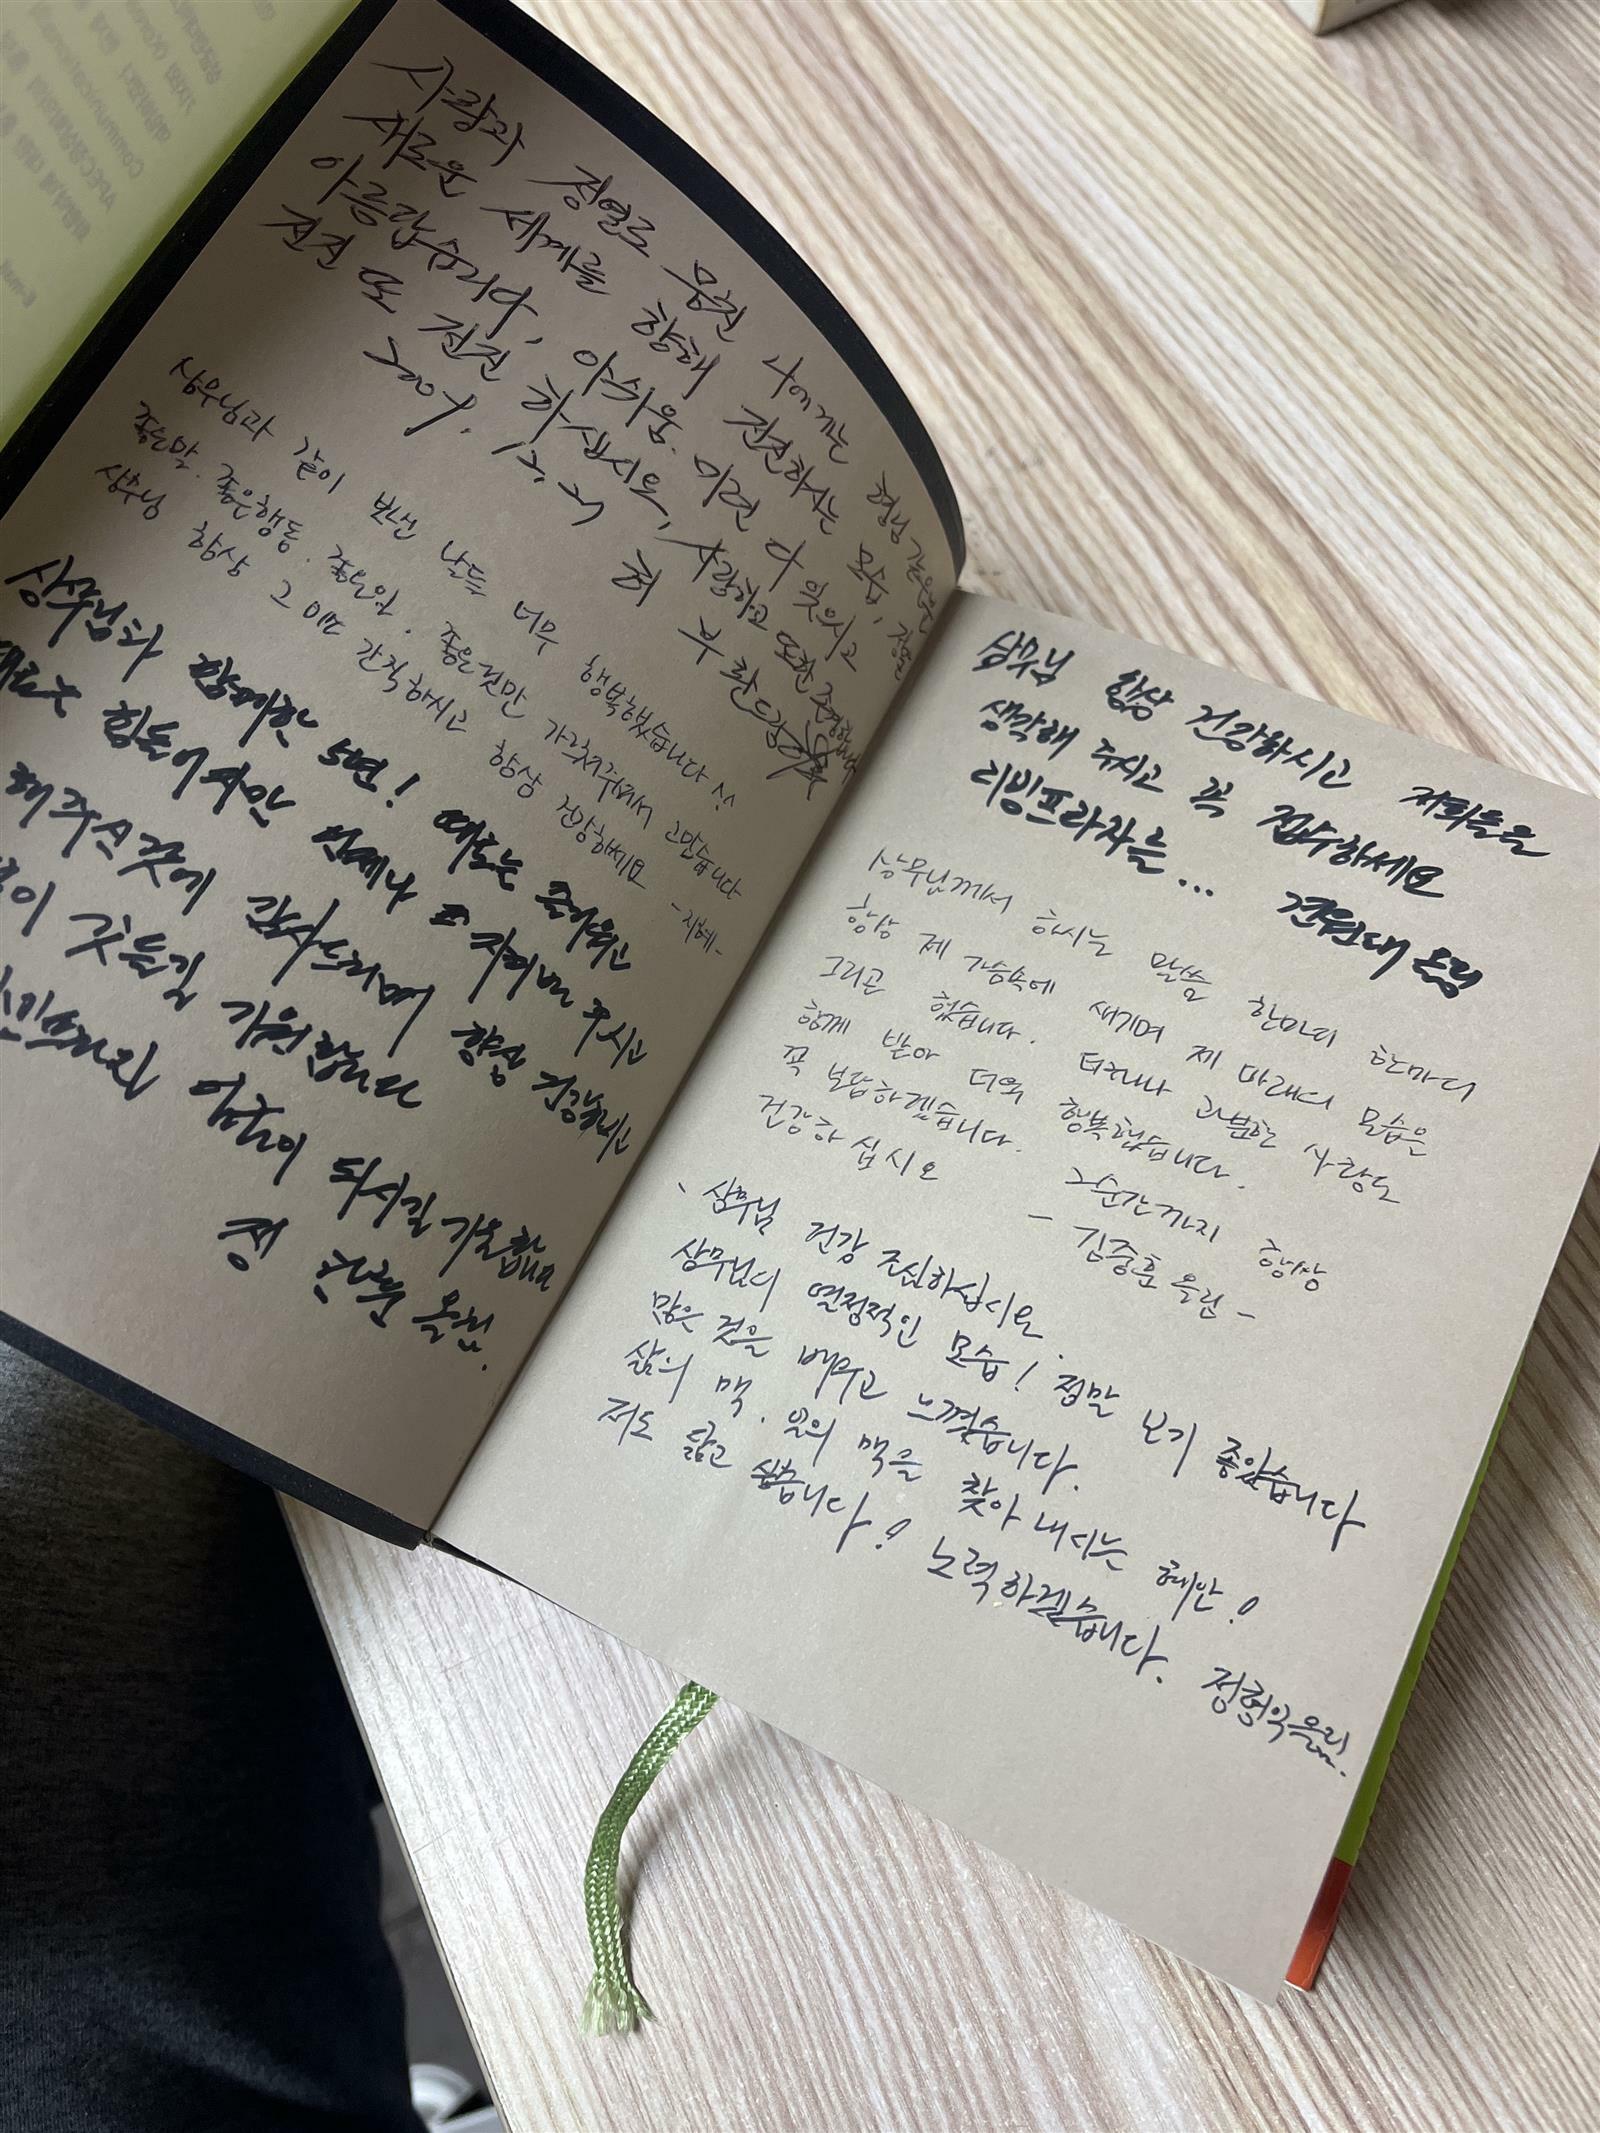 사랑과 정열로 뭉친 나에게는 형님 같은
새로운 세계를 향해 전진하시는 모습,
아름답습니다, 아쉬움. 미련 다 잊으시고
전진 또 전진 하십시요, 사랑하고 또한 존경합니다
2009. 12.
상무님과 같이 보낸 날들 너무 행복했습니다 ^^
좋은말. 좋은행동. 좋은 좋은것만 가르쳐주셔서 고맙습니다
상무님 항상 그 미모 간직하시고 항상 건강하세요
-지혜-
상무님과 함께한 5년! 때로는 즐거웁고
때로는 힘들어지만 언제나 지켜봐 주시고
해주신 것에 감사드리며 항상 건강하시고
깃들길 기원합니다
어른이 되시길 기원합니다
정 올림.
상무님 항상 건강하시고 저희들을
생각해 주시고 꼭 접수하세요
리빙프라자는... 전원대 드림
상무님께서 하시는 말씀 한마디 한마디
항상 제 가슴속에 새기며 제 미래의 모습을
그리곤 했습니다. 터져나 과분한 사랑도
함께 받아 더욱 행복했습니다.
꼭 보답하겠습니다. 그순간까지 항상
건강하십시오 - 김중훈 올림 -
상무님 건강 조심하십시요.
상무님의 열정적인 모습! 정말 보기 좋았습니다
많은 것을 배우고 느꼈습니다.
삶의 맥. 일의 맥을 찾아 내시는 혜안!
저도 닮고 싶습니다! 노력하겠습니다. 정형익올림.